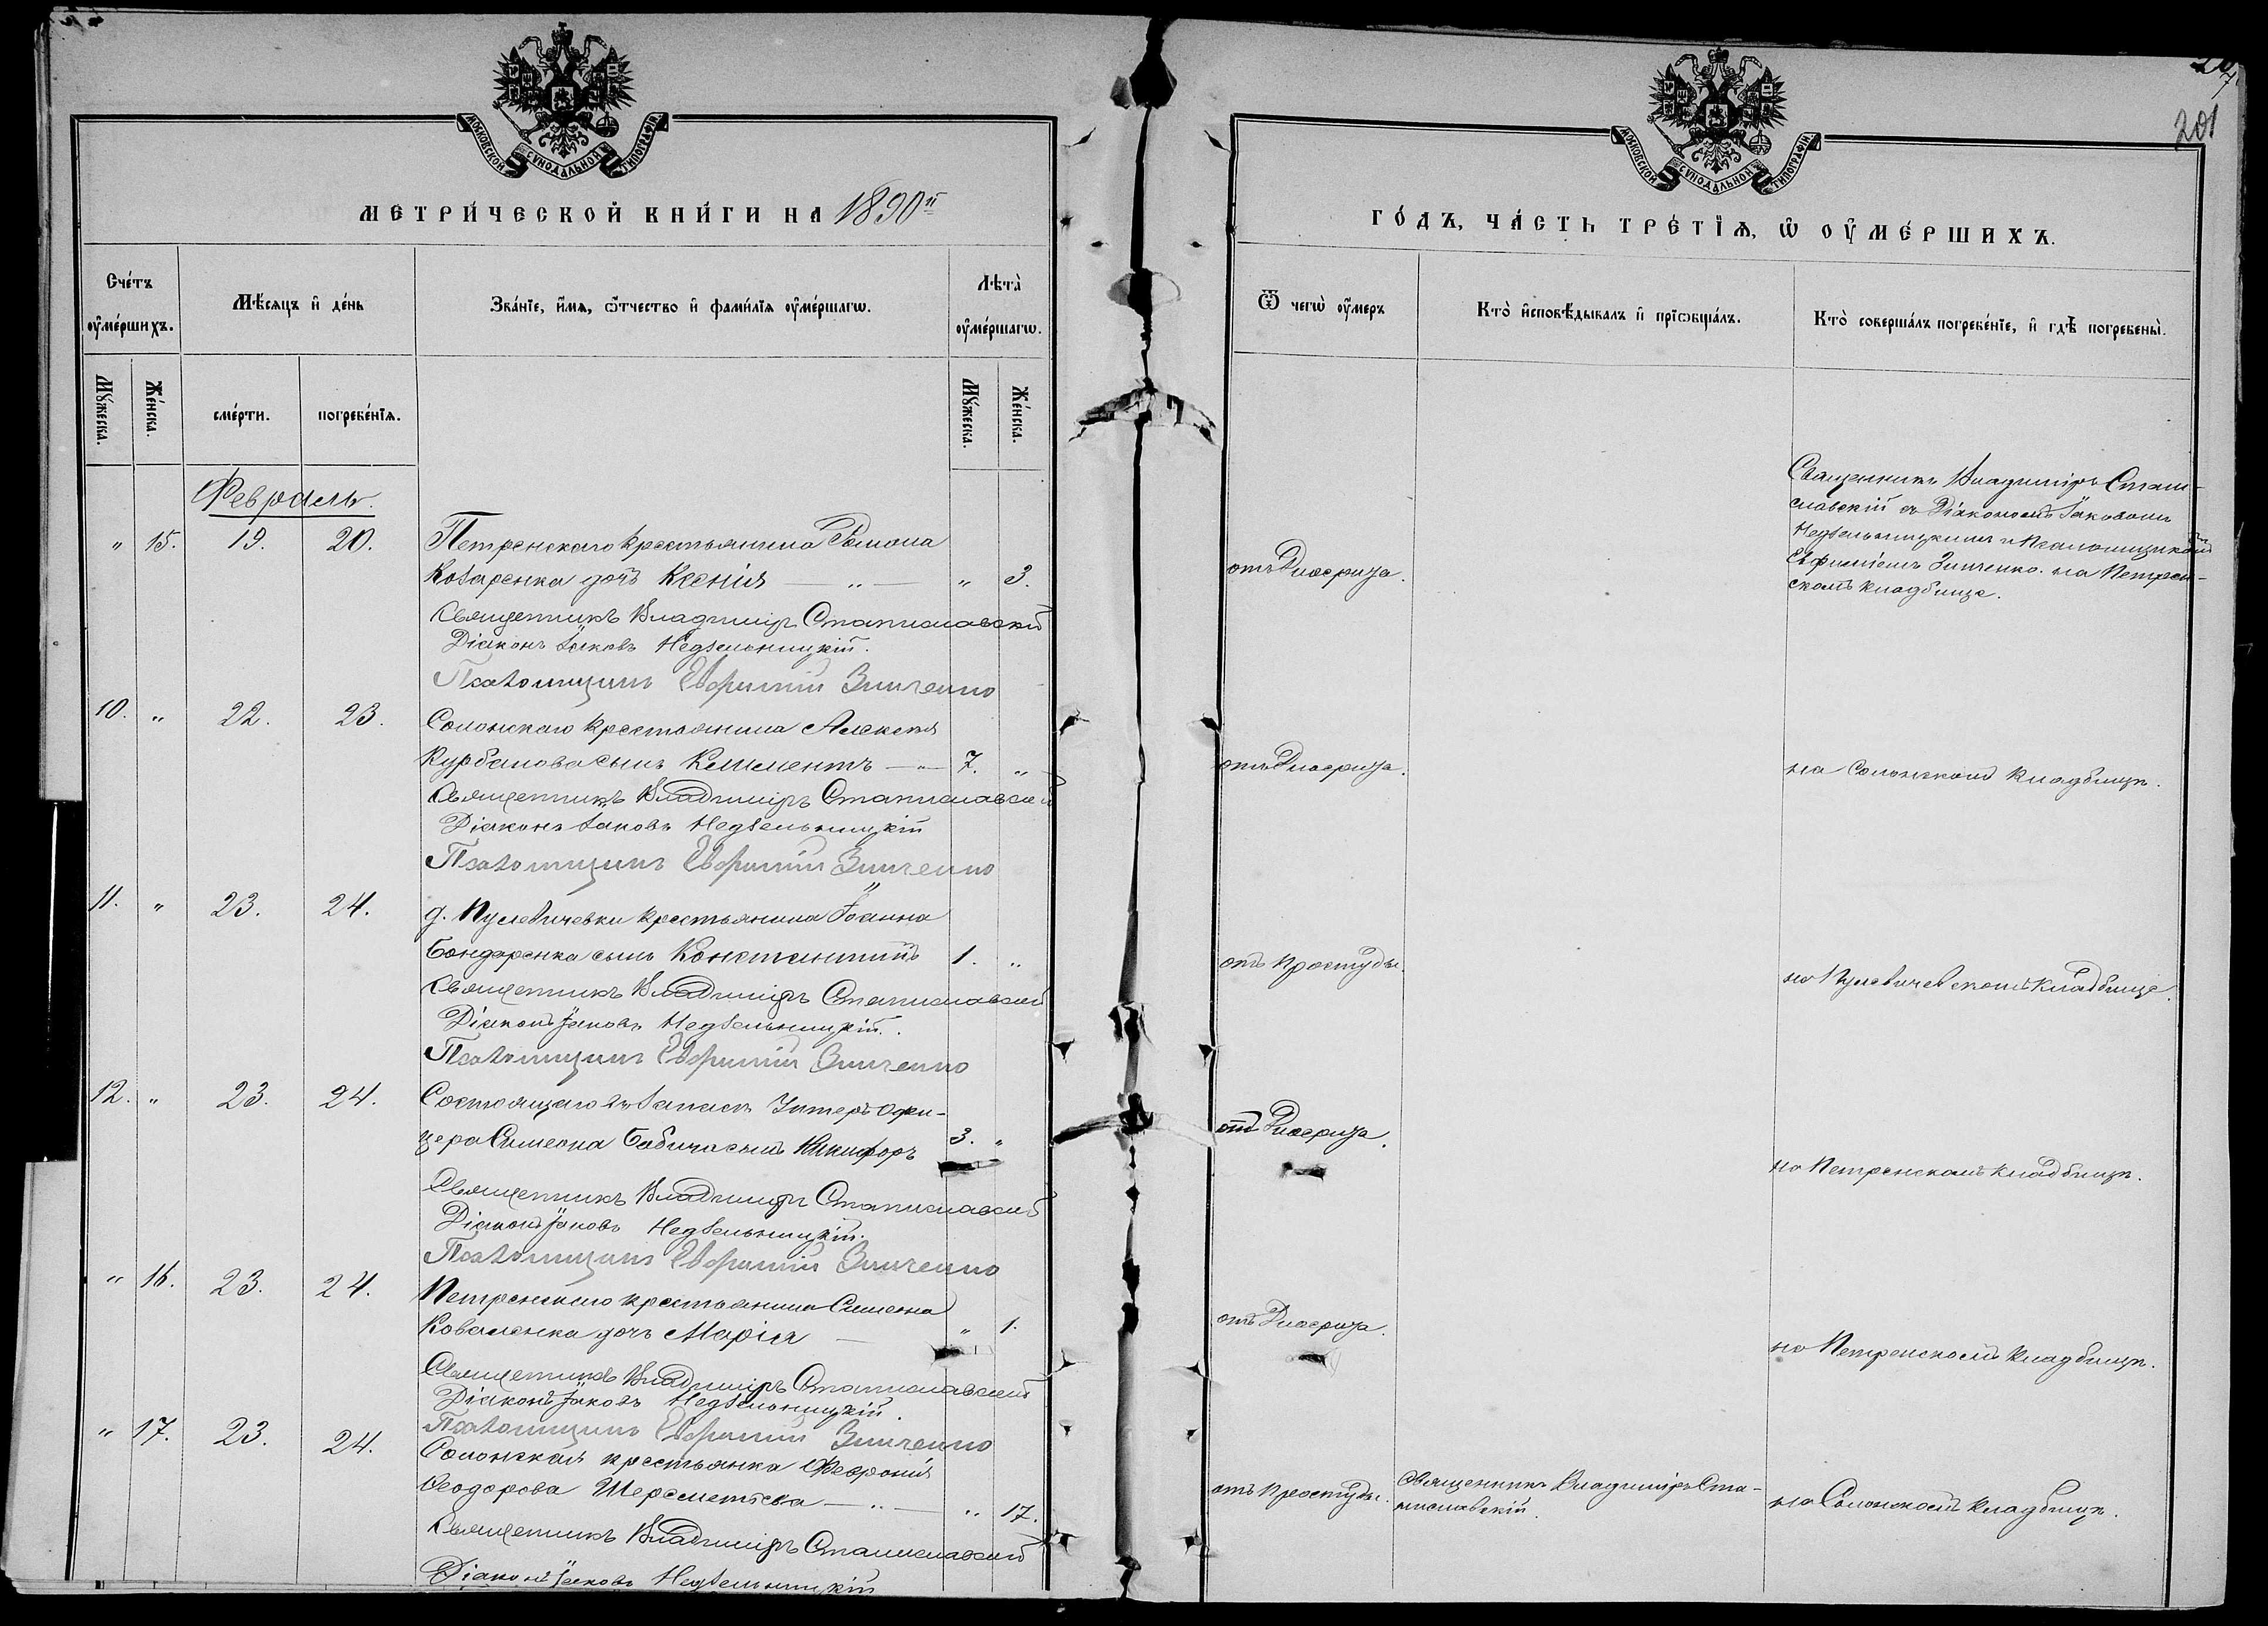 МОСКОВСКОЙ СѴНОДАЛЬНОЙ ТИПОГРАФІИ
МЕТРИ́ЧЕСКОЙ КНИ́ГИ НА 1890й
Сче́тъ ᲂу҆ме́ршихъ.
Мѣ́сяцъ и҆ де́нь
Зва́нїе, и҆́мѧ, ѻ҆́тчество и҆ фамилїѧ ᲂу҆ме́ршагѡ.
Лѣта̀ ᲂу҆ме́ршагѡ.
Мꙋ́жеска.
Же́нска.
сме́рти.
погребе́нїѧ.
Мꙋ́жеска.
Же́нска.
Февраль.
" 15. 19. 20. Петренскаго крестьянина Симона
Козаренка дочь Ксенія — " — " 3.
Священникъ Владиміръ Станиславскій
Діаконъ Іаковъ Недѣельницкій.
Псаломщикъ Евфимій Зинченко
10. " 22. 23. Солонскаго крестьянина Алексѣя
Курбанова сынъ Климентъ — " — 7. "
Священникъ Владиміръ Станиславскій
Діаконъ Іаковъ Недѣельницкій
Псаломщикъ Евфимій Зинченко
11. " 23. 24. д. Кулевичевки крестьянина Іоанна
Бондаренка сынъ Константинъ 1. "
Священникъ Владиміръ Станиславскій
Діаконъ Іаковъ Недѣельницкій.
Псаломщикъ Евфимій Зинченко
12. " 23. 24. Состоящаго въ запасѣ Унтеръ офи-
цера Симеона Бабича сынъ Никифоръ 3. "
Священникъ Владиміръ Станиславскій
Діаконъ Іаковъ Недѣельницкій.
Псаломщикъ Евфимій Зинченко
" 16. 23. 24. Петренскаго крестьянина Симеона
Коваленка дочь Марія — " 1.
Священникъ Владиміръ Станиславскій
Діаконъ Іаковъ Недѣельницкій.
Псаломщикъ Евфимій Зинченко
" 17. 23. 24. Солонская крестьянка Февронія
Ѳеодорова Шереметьева — " — " 17.
Священникъ Владиміръ Станиславскій
Діаконъ Іаковъ Недѣельницкій
201
МОСКОВСКОЙ СѴНОДАЛЬНОЙ ТИПОГРАФІИ
ГО́ДЪ, ЧА́СТЬ ТРЕ́ТЇѦ, Ѡ ОУ҆МЕ́РШИХЪ.
Ѿ чегѡ̀ ᲂу҆́меръ
Кто̀ и҆сповѣ́дывалъ и҆ прїѡбща́лъ.
Кто̀ соверша́лъ погребе́нїе, и҆ гдѣ̀ погребены̀.
отъ Диѳерита.
Священникъ Владиміръ Стани-
славскій съ Діакономъ Іаковомъ
Недѣельницкимъ и Псаломщикомъ
Евфиміемъ Зинченко. на Петрен-
скомъ кладбище.
отъ Диѳерита.
на Солонскомъ кладбищѣ.
отъ простуды.
на Кулевичевскомъ кладбище.
отъ Диѳерита.
на Петренскомъ кладбищѣ.
отъ Диѳерита.
на Петренскомъ кладбищѣ.
отъ простуды.
Священникъ Владиміръ Ста-
ниславскій.
на Солонскомъ кладбищѣ.